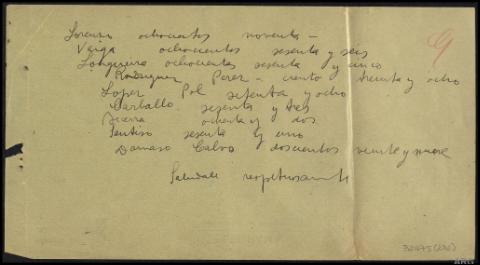 Lorenzo ochocientos noventa -
Veiga ochocientos sesenta y seis
Longueira ochocientos sesenta y cinco
Rodriguez Perez - ciento treinta y ocho
Lopez Pol setenta y ocho
Carballo sesenta y tres
Sierra ochenta y dos
sesenta y uno
Damaso Calvo doscientos veinte y nueve
Saludale respetuosamente